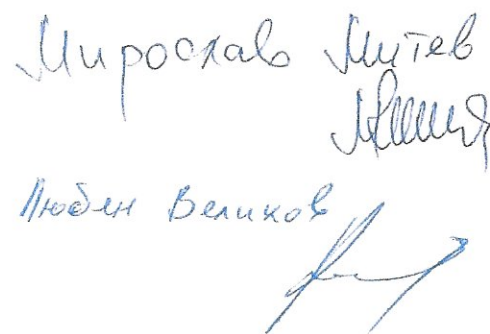 Мирослав Митев
Любен Великов